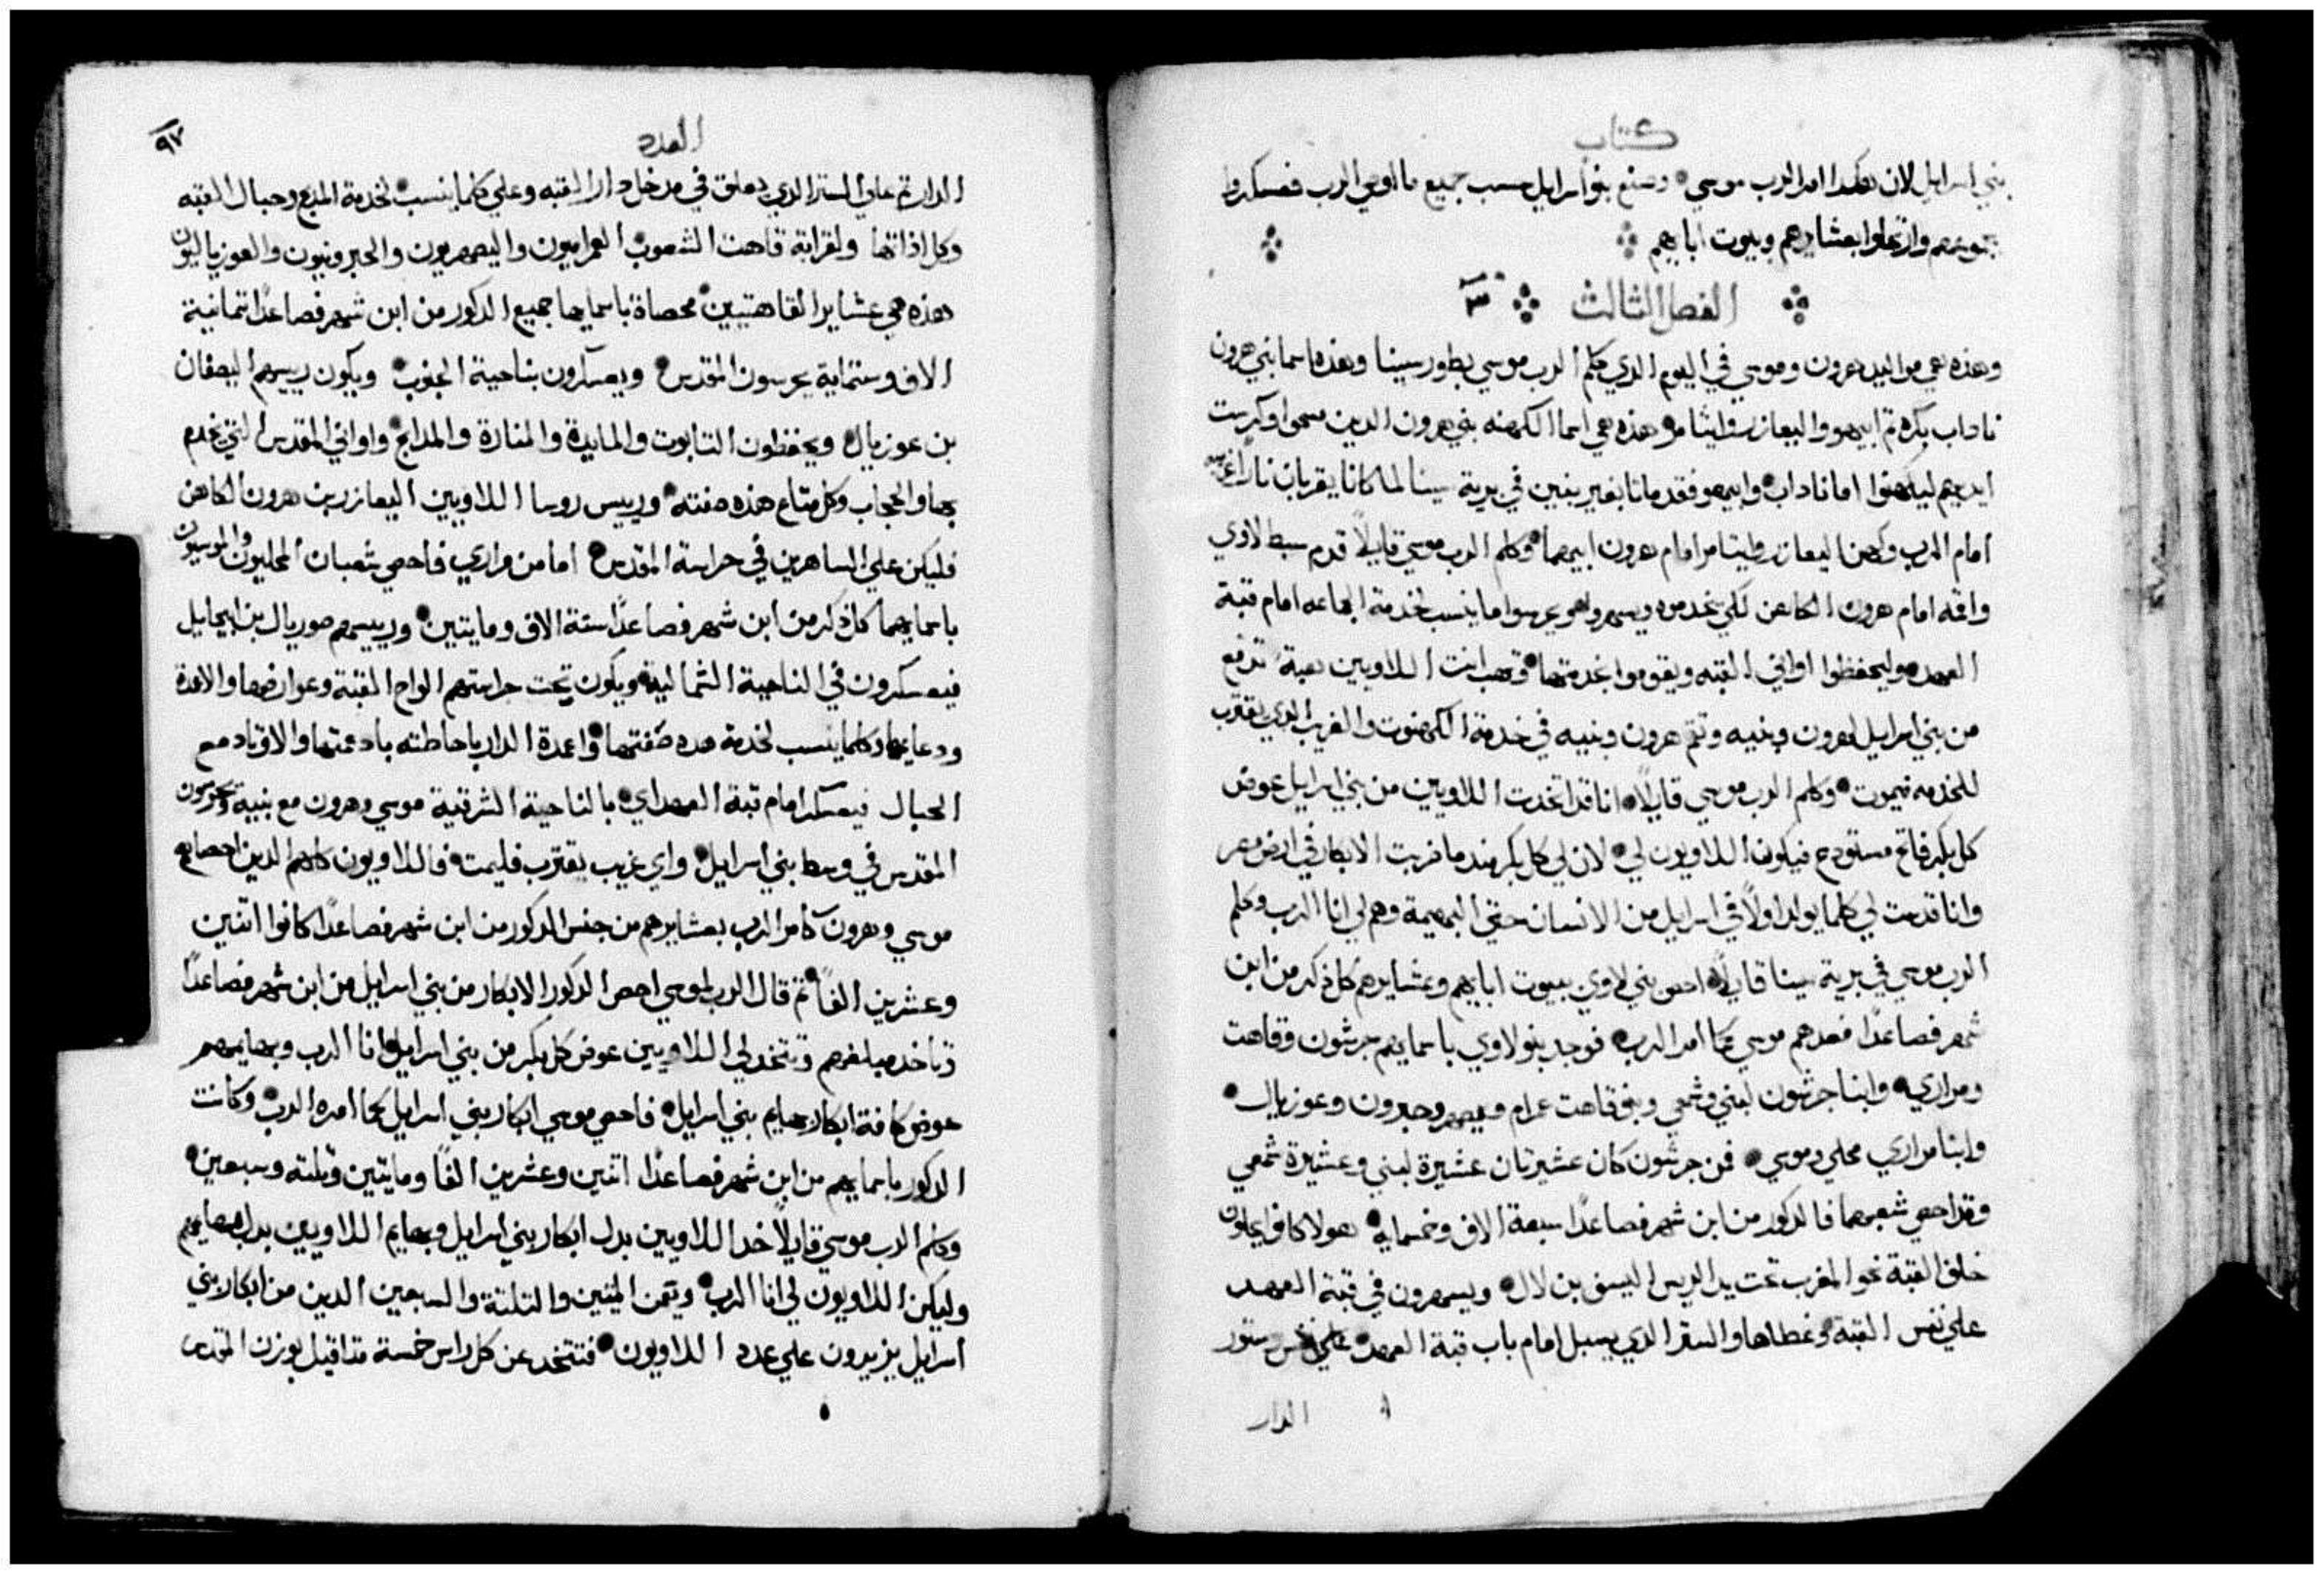 كتاب
بني اسرايل لان هكدا امر الرب موسي وصنع بنو اسرايل حسب جميع ما اوصي الرب فعسكروا
بجموعهم وارتحلوا بعشايرهم وبيوت ابايهم
الفصل الثالث ٣
وهذه هي مواليد هرون وموسي في اليوم الدي كلم الرب موسي بطور سينا وهذه اسما بني هرون
ناداب بكره تم ابيهو واليعازر وايثامر هذه هي اسما الكهنه بني هرون الدين مسحوا وكرست
ايديهم ليكهنوا اما ناداب وابيهو فقد ماتا بغير بنين في برية سينا لما كانا يقربان نارًا غريبه
امام الرب وكهن اليعازر وايتامر امام هرون ابيهما وكلم الرب موسي قايلاً قدم سبط لاوي
واقمه امام هرون الكاهن لكي يخدموه ويسهروا هو يحرسوا ما ينسب لخدمة الجماعه امام قبة
العهد وليحفظوا اواني القبه ويقوموا بخدمتها وتهب انت اللاويين هبة تدفع
من بني اسرايل لهرون وبنيه وتقم هرون وبنيه في خدمة الكهنوت والغريب الدي يقترب
للخدمه فيموت وكلم الرب موسي قايلاً انا قد اتخدت اللاويين من بني اسرايل عوض
كل بكر فاتح مستودع فيكون اللاويون لي لان لي كل بكر مند ما ضربت الابكار في ارض مصر
وانا قدست لي كلما يولد اولاً في اسرايل من الانسان حتي البهيمة وهم لي انا الرب وكلم
الرب موسي في برية سينا قايلاً احص بني لاوي ببيوت ابايهم وعشايرهم كل ذكر من ابن
شهر فصاعدًا فعدهم موسي كما امر الرب فوجد بنو لاوي باسمايهم جرشون وقاهت
ومراري وابنا جرشون لبني وشمعي وبنو قاهت عمرام ويصهر وحبرون وعوزيال
وابنا مراري محلي وموسي فمن جرشون كان عشيرتان عشيرة لبني وعشيرة شمعي
وقد احصي شعبهما فالدكور من ابن شهر فصاعدًا سبعة الاف وخمسماية هولا كانوا يحلون
خلف القبة نحو المغرب تحت يد الريس اليسف بن لال ويسهرون في قبة العهد
علي نفس القبة وغطاها والستر الدي يسبل امام باب قبة العهد علي نفس ستور
الدار
العدد
٩٧
الدار تم علي الستر الدي يعلق في مدخل دار القبه وعلي كلما ينسب لخدمة المدبح وحبال القبه
وكل اداتها ولقرابة قاهت الشعوب العمراميون واليصهريون والحبرونيون والعوزياليون
هذه هي عشاير القاهتيين محصاة باسمايها جميع الدكور من ابن شهر فصاعدًا تمانية
الاف وستماية يحرسون المقدس ويعسكرون بناحية الجنوب ويكون رييسهم اليصفان
بن عوزيال ويحفظون التابوت والمايدة والمنارة والمدابح واواني المقدس التي يخدم
بها والحجاب وكل متاع هذه صفته ورييس روسا اللاويين اليعازر بن هرون الكاهن
فليكن علي الساهرين في حراسة المقدس اما من مراري فاحصي شعبان المحليون والموسيون
باسمايهما كل ذكر من ابن شهر فصاعدًا ستة الاف ومايتين ورييسهم صوريال بن ابيحايل
فيعسكرون في الناحية الشمالية ويكون تحت حراستهم الواح القبة وعوارضها والاعمدة
ودعايمها وكلما ينسب لخدمة هده صفتها واعمدة الدار باحاطته بادعمتها والاوتاد مع
الحبال فيعسكر امام قبة العهد اي بالناحية الشرقية موسي وهرون مع بنيه ويحرسون
المقدس في وسط بني اسرايل واي غريب يقترب فليمت فاللاويون كلهم الدين احصاهم
موسي وهرون كامر الرب بعشايرهم من جنس الدكور من ابن شهر فصاعدًا كانوا اتنين
وعشرين الفاً تم قال الرب لموسي احص الدكور الابكار من بني اسرايل من ابن شهر فصاعدًا
وتاخد مبلغهم وتتخد لي اللاويين عوض كل بكر من بني اسرايل انا الرب وبهايمهم
عوض كافة ابكار بهايم بني اسرايل فاحصي موسي ابكار بني اسرايل كما امره الرب وكانت
الدكور باسمايهم من ابن شهر فصاعدًا اتنين وعشرين الفًا ومايتين وتلتة وسبعين
وكلم الرب موسي قايلاً خد اللاويين بدل ابكار بني اسرايل وبهايم اللاويين بدل بهايمهم
وليكن اللاويون لي انا الرب وتمن الميتين والتلتة والسبعين الدين من ابكار بني
اسرايل يزيدون علي عدد اللاويون فتتخد عن كل راس خمسة متاقيل بوزن المقدس